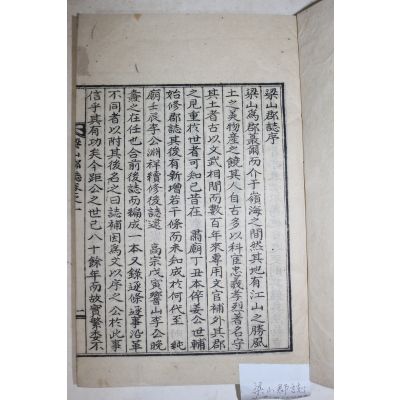 梁山郡誌序
梁山為郡蕞爾而介于嶺海之間然其地有江山之勝風
土之美物產之饒其人自古多以科宦忠義孝烈著名守
其土者古以文武相間而數百年來專用文官補外其郡
之見重於世者可知已昔在 肅廟丁丑本倅姜公世輔
始修郡誌其後有新增若干條而未知成於何代至 純
廟壬辰李公淵祥續修後誌逮 高宗戊寅響山李公晚
燾之在任也合前後誌而編成一本又錄逐條逐事沿革
不同者以附其後名之曰誌補因為文以序之公於此事
信乎其有功矣今距公之世已八十餘年而故實繁委不
梁山郡誌卷之一
一
梁山郡誌